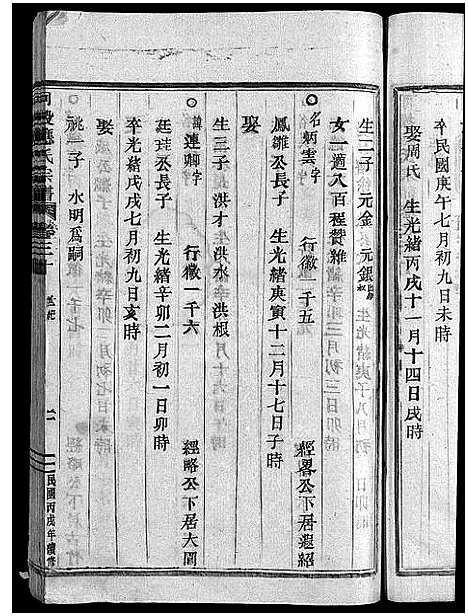 卒民國庚午七月初九日未時
娶周氏 生光緒丙戌十一月十四日戌時
生二子 元金 元銀
女一適八百程贊雄
名炳雲字 行徽一千五 經畧公下居遐紹
鳳雛公長子 生光緒庚寅十二月十七日子時
娶
生三子 洪才 洪水 洪根
諱連卿字 行徽一千六 經略公下居大圓
廷珪公長子 生光緒辛卯二月初一日卯時
卒光緒戊戌七月初九日亥時
娶
祧一子 水明爲嗣
氏宗譜 卷三十
二
民國丙戌年續修